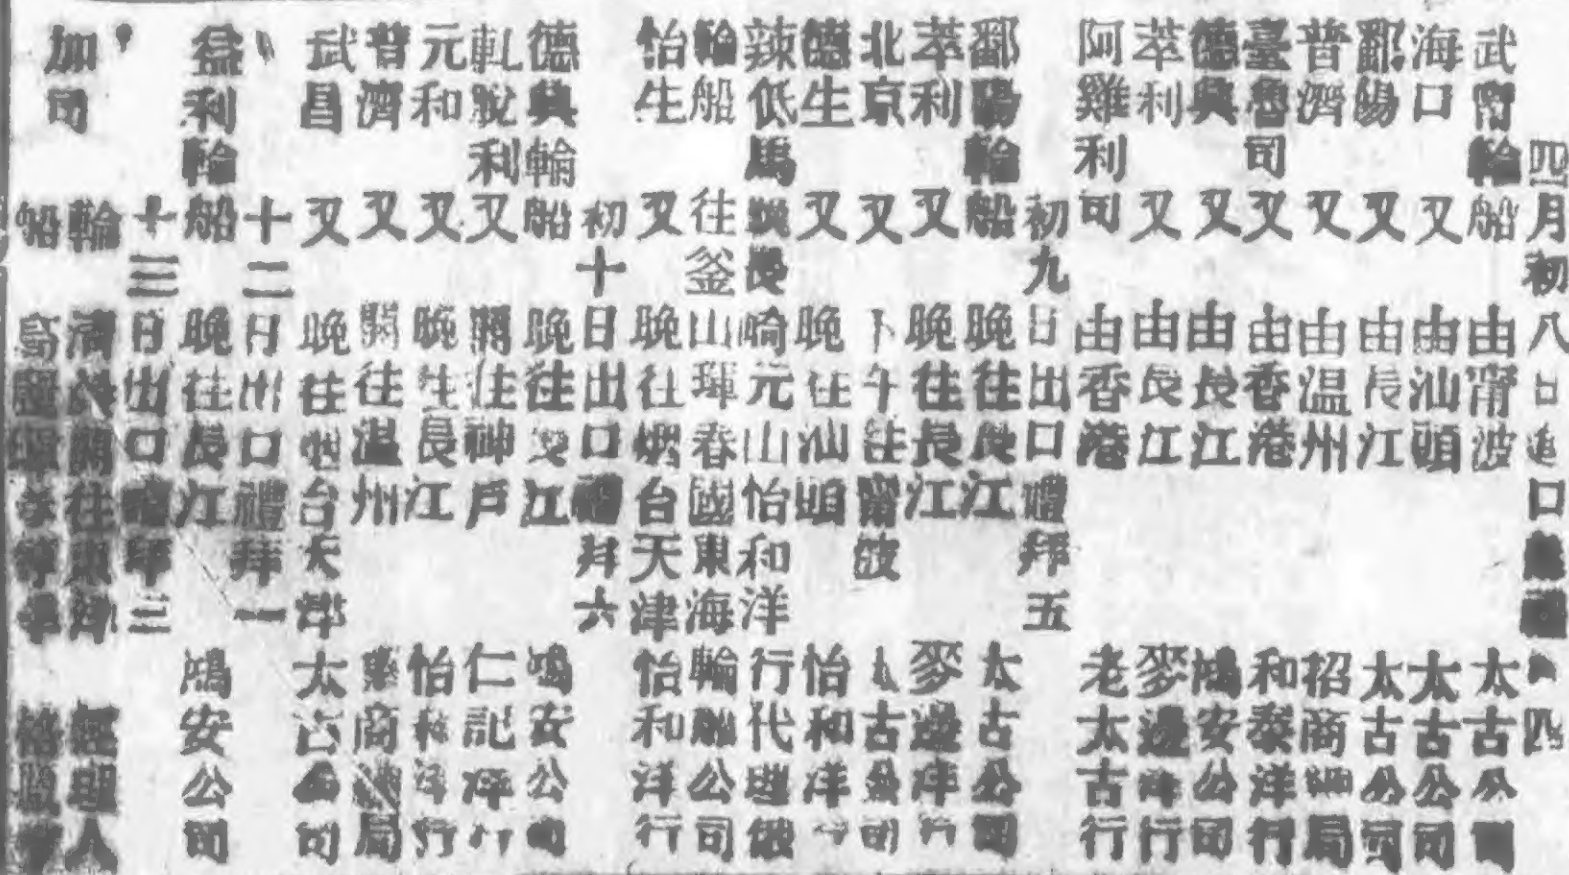 四月初八日進口禮拜四
武甯輪船由甯波太古公司
海口又由汕頭太古公司
鄱陽又由長江太古公司
普濟又由温州招商局
臺魯司又由香港和泰洋行
德興又由長江鴻安公司
萃利又由長江麥邊洋行
阿雞利司由香港老太古行
初九日出口禮拜五
鄱陽輪船晚往長江太古公司
萃利又晚往長江麥邊洋行
北京又下午往甯波太古公司
德生又晚往汕頭怡和洋行
辣低馬長崎元山怡和洋行代理俄
輪船往釜山琿春國東海輪船公司
怡生又晚往烟台天津怡和洋行
初十日出口禮拜六
德興輪船晚往長江鴻安公司
軋脫利又往神戶仁記洋行
元和又晚往長江怡和洋行
普濟又往温州商局
武昌又晚往烟台天津太古公司
十二日出口禮拜一
益利輪船晚往長江鴻安公司
十三日出口禮拜三
輪往東經理人
加司船